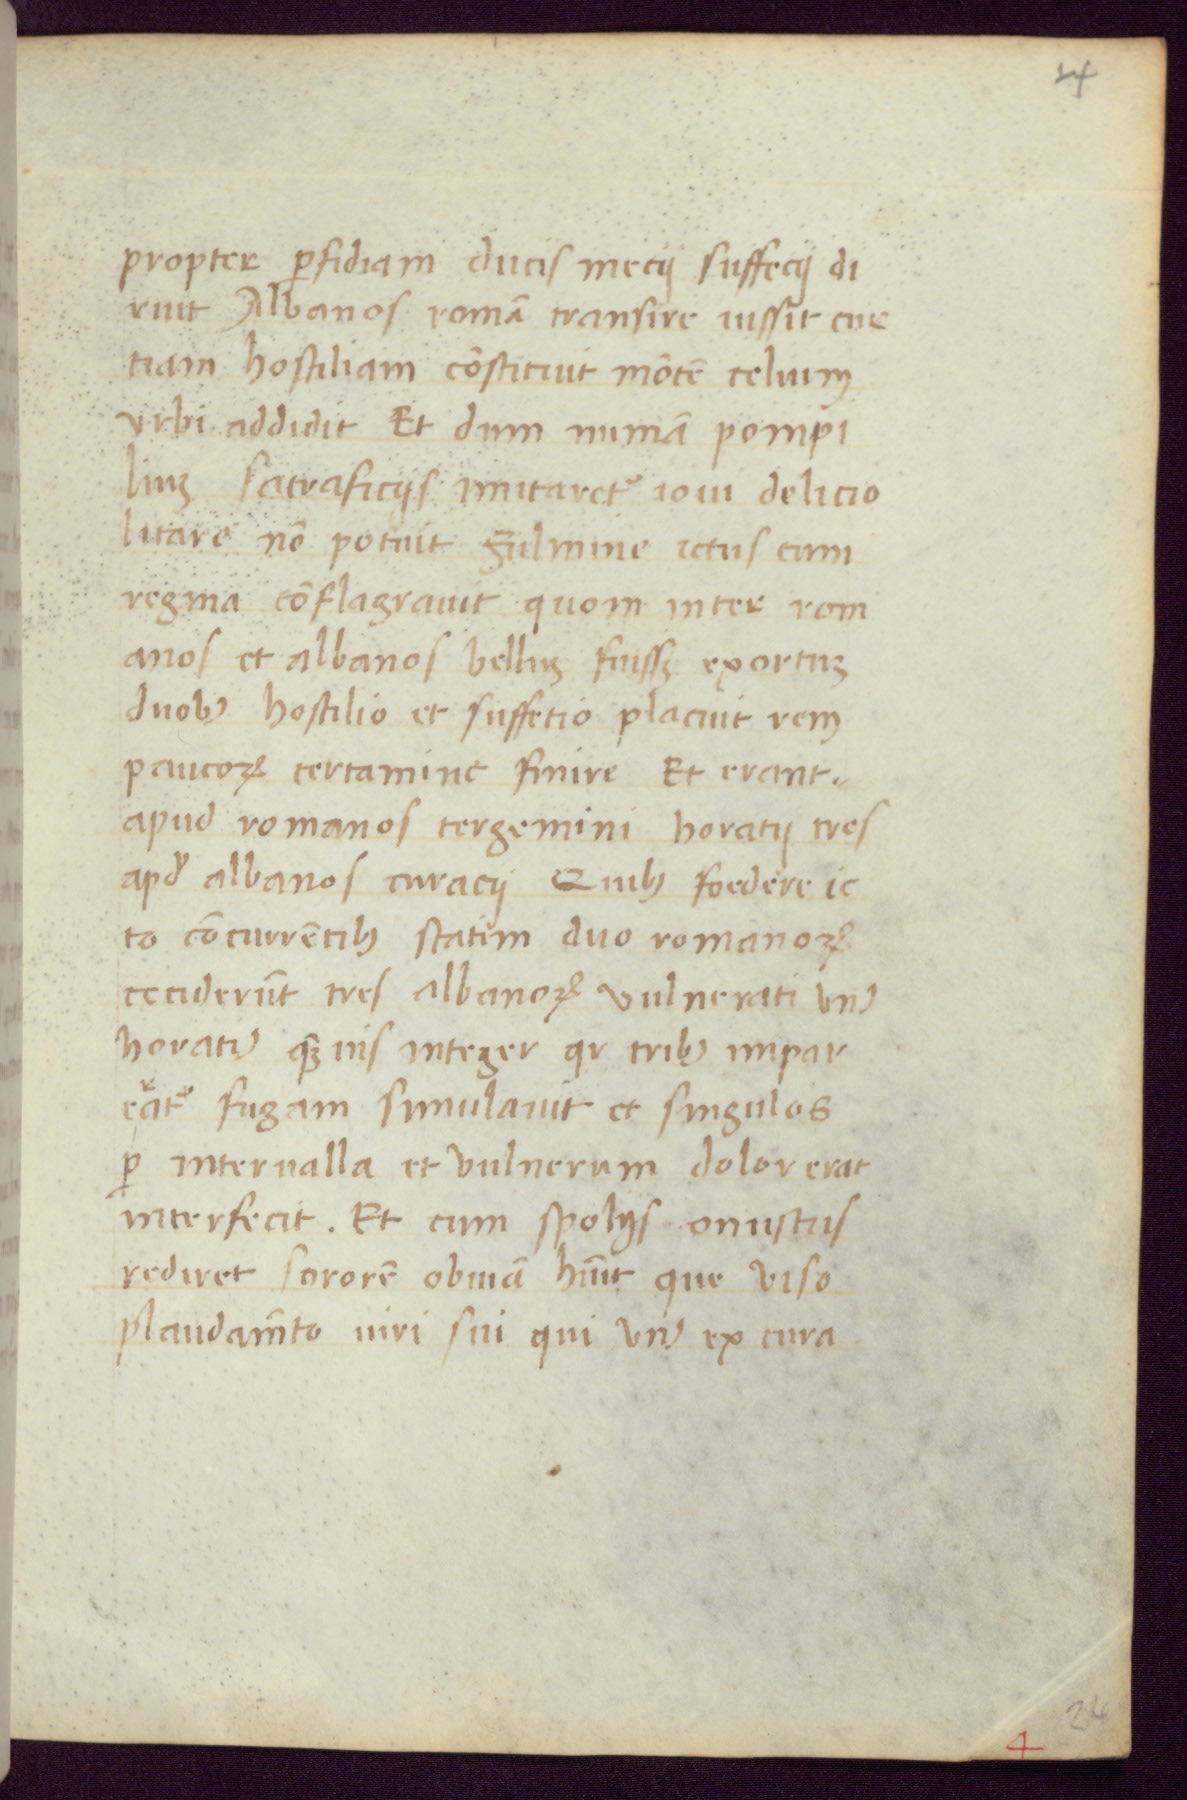 4
propter ꝑfidiam ducis mecij suffecij di
ruit Albanos romā transire iussit cue
tiam hostiliam cōstituit mōtē celium
vrbi addidit Et dum numā pompi
liuꝫ sacraficijs imitaret᷑ ioui delicio
litare nō potuit fulmine ictus cum
regina cōflagrauit quom inter rom
anos et albanos belluꝫ fuissꝫ exortuꝫ
duobꝰ hostilio et suffetio placuit rem
paucoꝝ certamine finire Et erant
apud romanos tergemini horatij tres
apd albanos curacij Quibꝰ foedere ic
to cōcurrētibꝰ statim duo romanoꝝ
ceciderūt tres albanoꝝ vulnerati vnꝰ
horatiꝰ qꝫuis integer qr tribꝰ impar
erat fugam simulauit et singulos
ꝑ interualla et vulnerum dolor erat
interfecit. Et cum spolijs onustus
rediret sororē obuiā hūit que viso
plaudamēto uiri sui qui vnꝰ ex cura
24
4